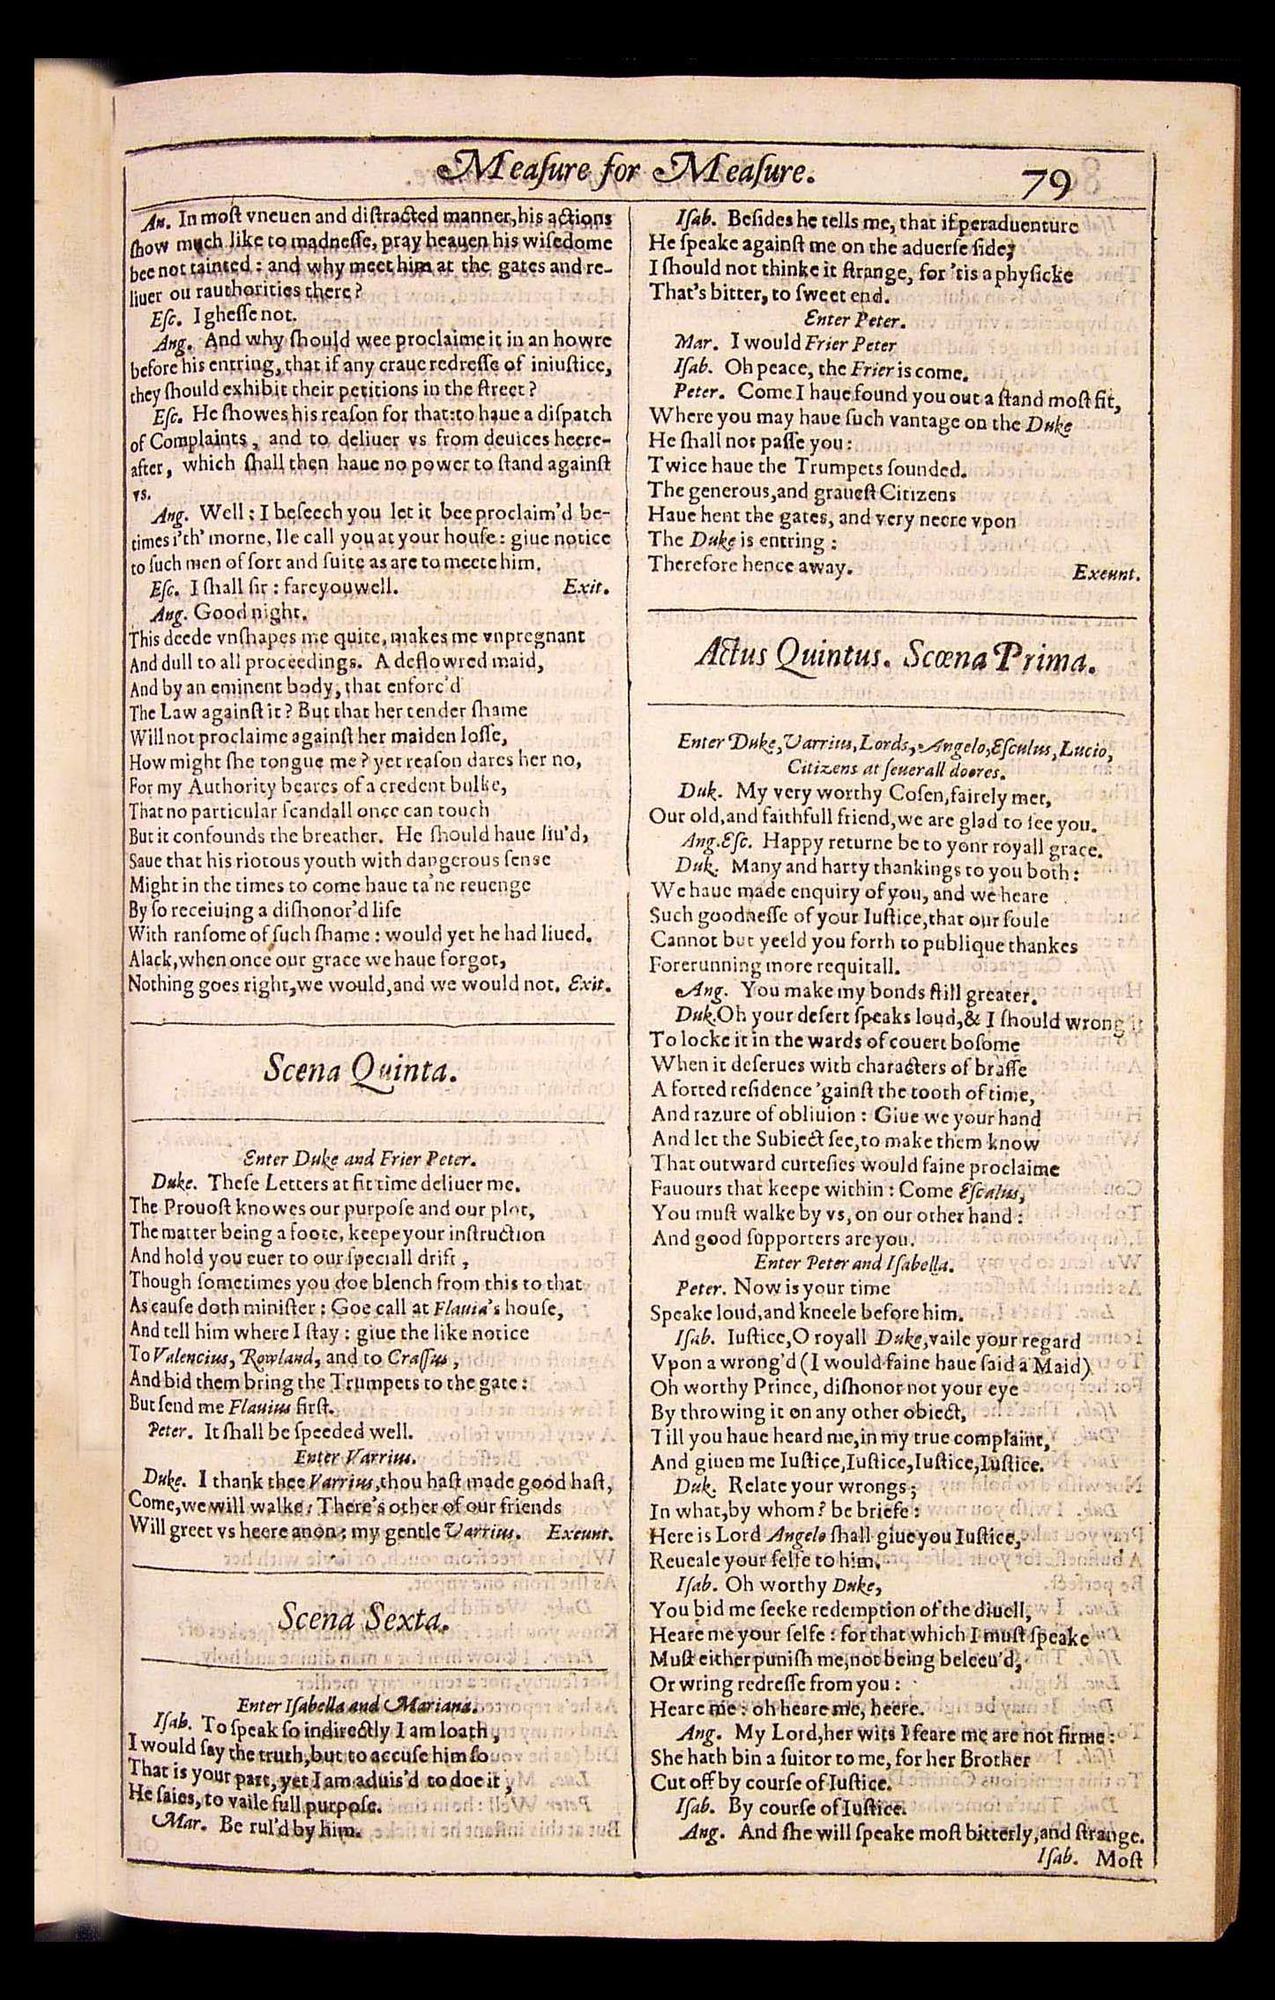 Meaſure for Meaſure.
79
An. In moſt vneuen and diſtracted manner, his actions
ſhow much like to madneſſe, pray heauen his wiſedome
bee not tainted : and why meet him at the gates and re-
liuer ou rauthorities there?
Eſc. I gheſſe not.
Ang. And why ſhould wee proclaime it in an howre
before his entring, that if any craue redreſſe of iniuſtice,
they ſhould exhibit their petitions in the ſtreet?
Eſc. He ſhowes his reaſon for that: to haue a diſpatch
of Complaints, and to deliuer vs from deuices heere-
after, which ſhall then haue no power to ſtand againſt
vs.
Ang. Well : I beſeech you let it bee proclaim'd be-
times i'th' morne, Ile call you at your houſe : giue notice
to ſuch men of ſort and ſuite as are to meete him.
Eſc. I ſhall ſir : fareyouwell. Exit.
Ang. Good night.
This deede vnſhapes me quite, makes me vnpregnant
And dull to all proceedings. A deflowred maid,
And by an eminent body, that enforc'd
The Law againſt it? But that her tender ſhame
Will not proclaime againſt her maiden loſſe,
How might ſhe tongue me? yet reaſon dares her no,
For my Authority beares of a credent bulke,
That no particular ſcandall once can touch
But it confounds the breather. He ſhould haue liu'd,
Saue that his riotous youth with dangerous ſenſe
Might in the times to come haue ta'ne reuenge
By ſo receiuing a diſhonor'd life
With ranſome of ſuch ſhame : would yet he had liued.
Alack, when once our grace we haue forgot,
Nothing goes right, we would, and we would not. Exit.
Scena Quinta.
Enter Duke and Frier Peter.
Duke. Theſe Letters at fit time deliuer me.
The Prouoſt knowes our purpoſe and our plot,
The matter being a foote, keepe your inſtruction
And hold you euer to our ſpeciall drift,
Though ſometimes you doe blench from this to that
As cauſe doth miniſter : Goe call at Flauia's houſe,
And tell him where I ſtay : giue the like notice
To Valencius, Rowland, and to Craſſus,
And bid them bring the Trumpets to the gate :
But ſend me Flauius firſt.
Peter. It ſhall be ſpeeded well.
Enter Varrius.
Duke. I thank thee Varrius, thou haſt made good haſt,
Come, we will walke : There's other of our friends
Will greet vs heere anon : my gentle Varrius. Exeunt.
Scena Sexta.
Enter Iſabella and Mariana.
Iſab. To ſpeak ſo indirectly I am loath,
I would ſay the truth, but to accuſe him ſo
That is your part, yet I am aduis'd to doe it,
He ſaies, to vaile full purpoſe.
Mar. Be rul'd by him.
Iſab. Beſides he tells me, that if peraduenture
He ſpeake againſt me on the aduerſe ſide,
I ſhould not thinke it ſtrange, for 'tis a phyſicke
That's bitter, to ſweet end.
Enter Peter.
Mar. I would Frier Peter
Iſab. Oh peace, the Frier is come.
Peter. Come I haue found you out a ſtand moſt fit,
Where you may haue ſuch vantage on the Duke
He ſhall not paſſe you :
Twice haue the Trumpets ſounded.
The generous, and graueſt Citizens
Haue hent the gates, and very neere vpon
The Duke is entring :
Therefore hence away. Exeunt.
Actus Quintus. Scœna Prima.
Enter Duke, Varrius, Lords, Angelo, Eſculus, Lucio,
Citizens at ſeuerall doores.
Duk. My very worthy Coſen, fairely met,
Our old, and faithfull friend, we are glad to ſee you.
Ang. Eſc. Happy returne be to yonr royall grace.
Duk. Many and harty thankings to you both :
We haue made enquiry of you, and we heare
Such goodneſſe of your Iuſtice, that our ſoule
Cannot but yeeld you forth to publique thankes
Forerunning more requitall.
Ang. You make my bonds ſtill greater.
Duk. Oh your deſert ſpeaks loud, & I ſhould wrong it
To locke it in the wards of couert boſome
When it deſerues with characters of braſſe
A forted reſidence 'gainſt the tooth of time,
And razure of obliuion : Giue we your hand
And let the Subiect ſee, to make them know
That outward curteſies would faine proclaime
Fauours that keepe within : Come Eſcalus,
You muſt walke by vs, on our other hand :
And good ſupporters are you.
Enter Peter and Iſabella.
Peter. Now is your time
Speake loud, and kneele before him.
Iſab. Iuſtice, O royall Duke, vaile your regard
Vpon a wrong'd (I would faine haue ſaid a Maid)
Oh worthy Prince, diſhonor not your eye
By throwing it on any other obiect,
Till you haue heard me, in my true complaint,
And giuen me Iuſtice, Iuſtice, Iuſtice, Iuſtice.
Duk. Relate your wrongs;
In what, by whom? be briefe :
Here is Lord Angelo ſhall giue you Iuſtice,
Reueale your ſelfe to him.
Iſab. Oh worthy Duke,
You bid me ſeeke redemption of the diuell,
Heare me your ſelfe : for that which I muſt ſpeake
Muſt either puniſh me, not being beleeu'd,
Or wring redreſſe from you :
Heare me : oh heare me, heere.
Ang. My Lord, her wits I feare me are not firme :
She hath bin a ſuitor to me, for her Brother
Cut off by courſe of Iuſtice.
Iſab. By courſe of Iuſtice.
Ang. And ſhe will ſpeake moſt bitterly, and ſtrange.
Iſab. Moſt